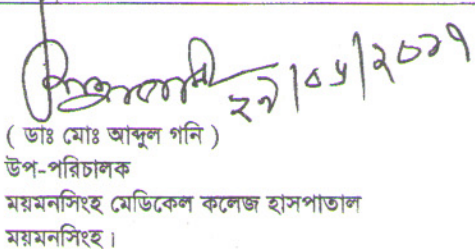 ( ডাঃ মোঃ আব্দুল গনি )
উপ-পরিচালক
ময়মনসিংহ মেডিকেল কলেজ হাসপাতাল
ময়মনসিংহ।